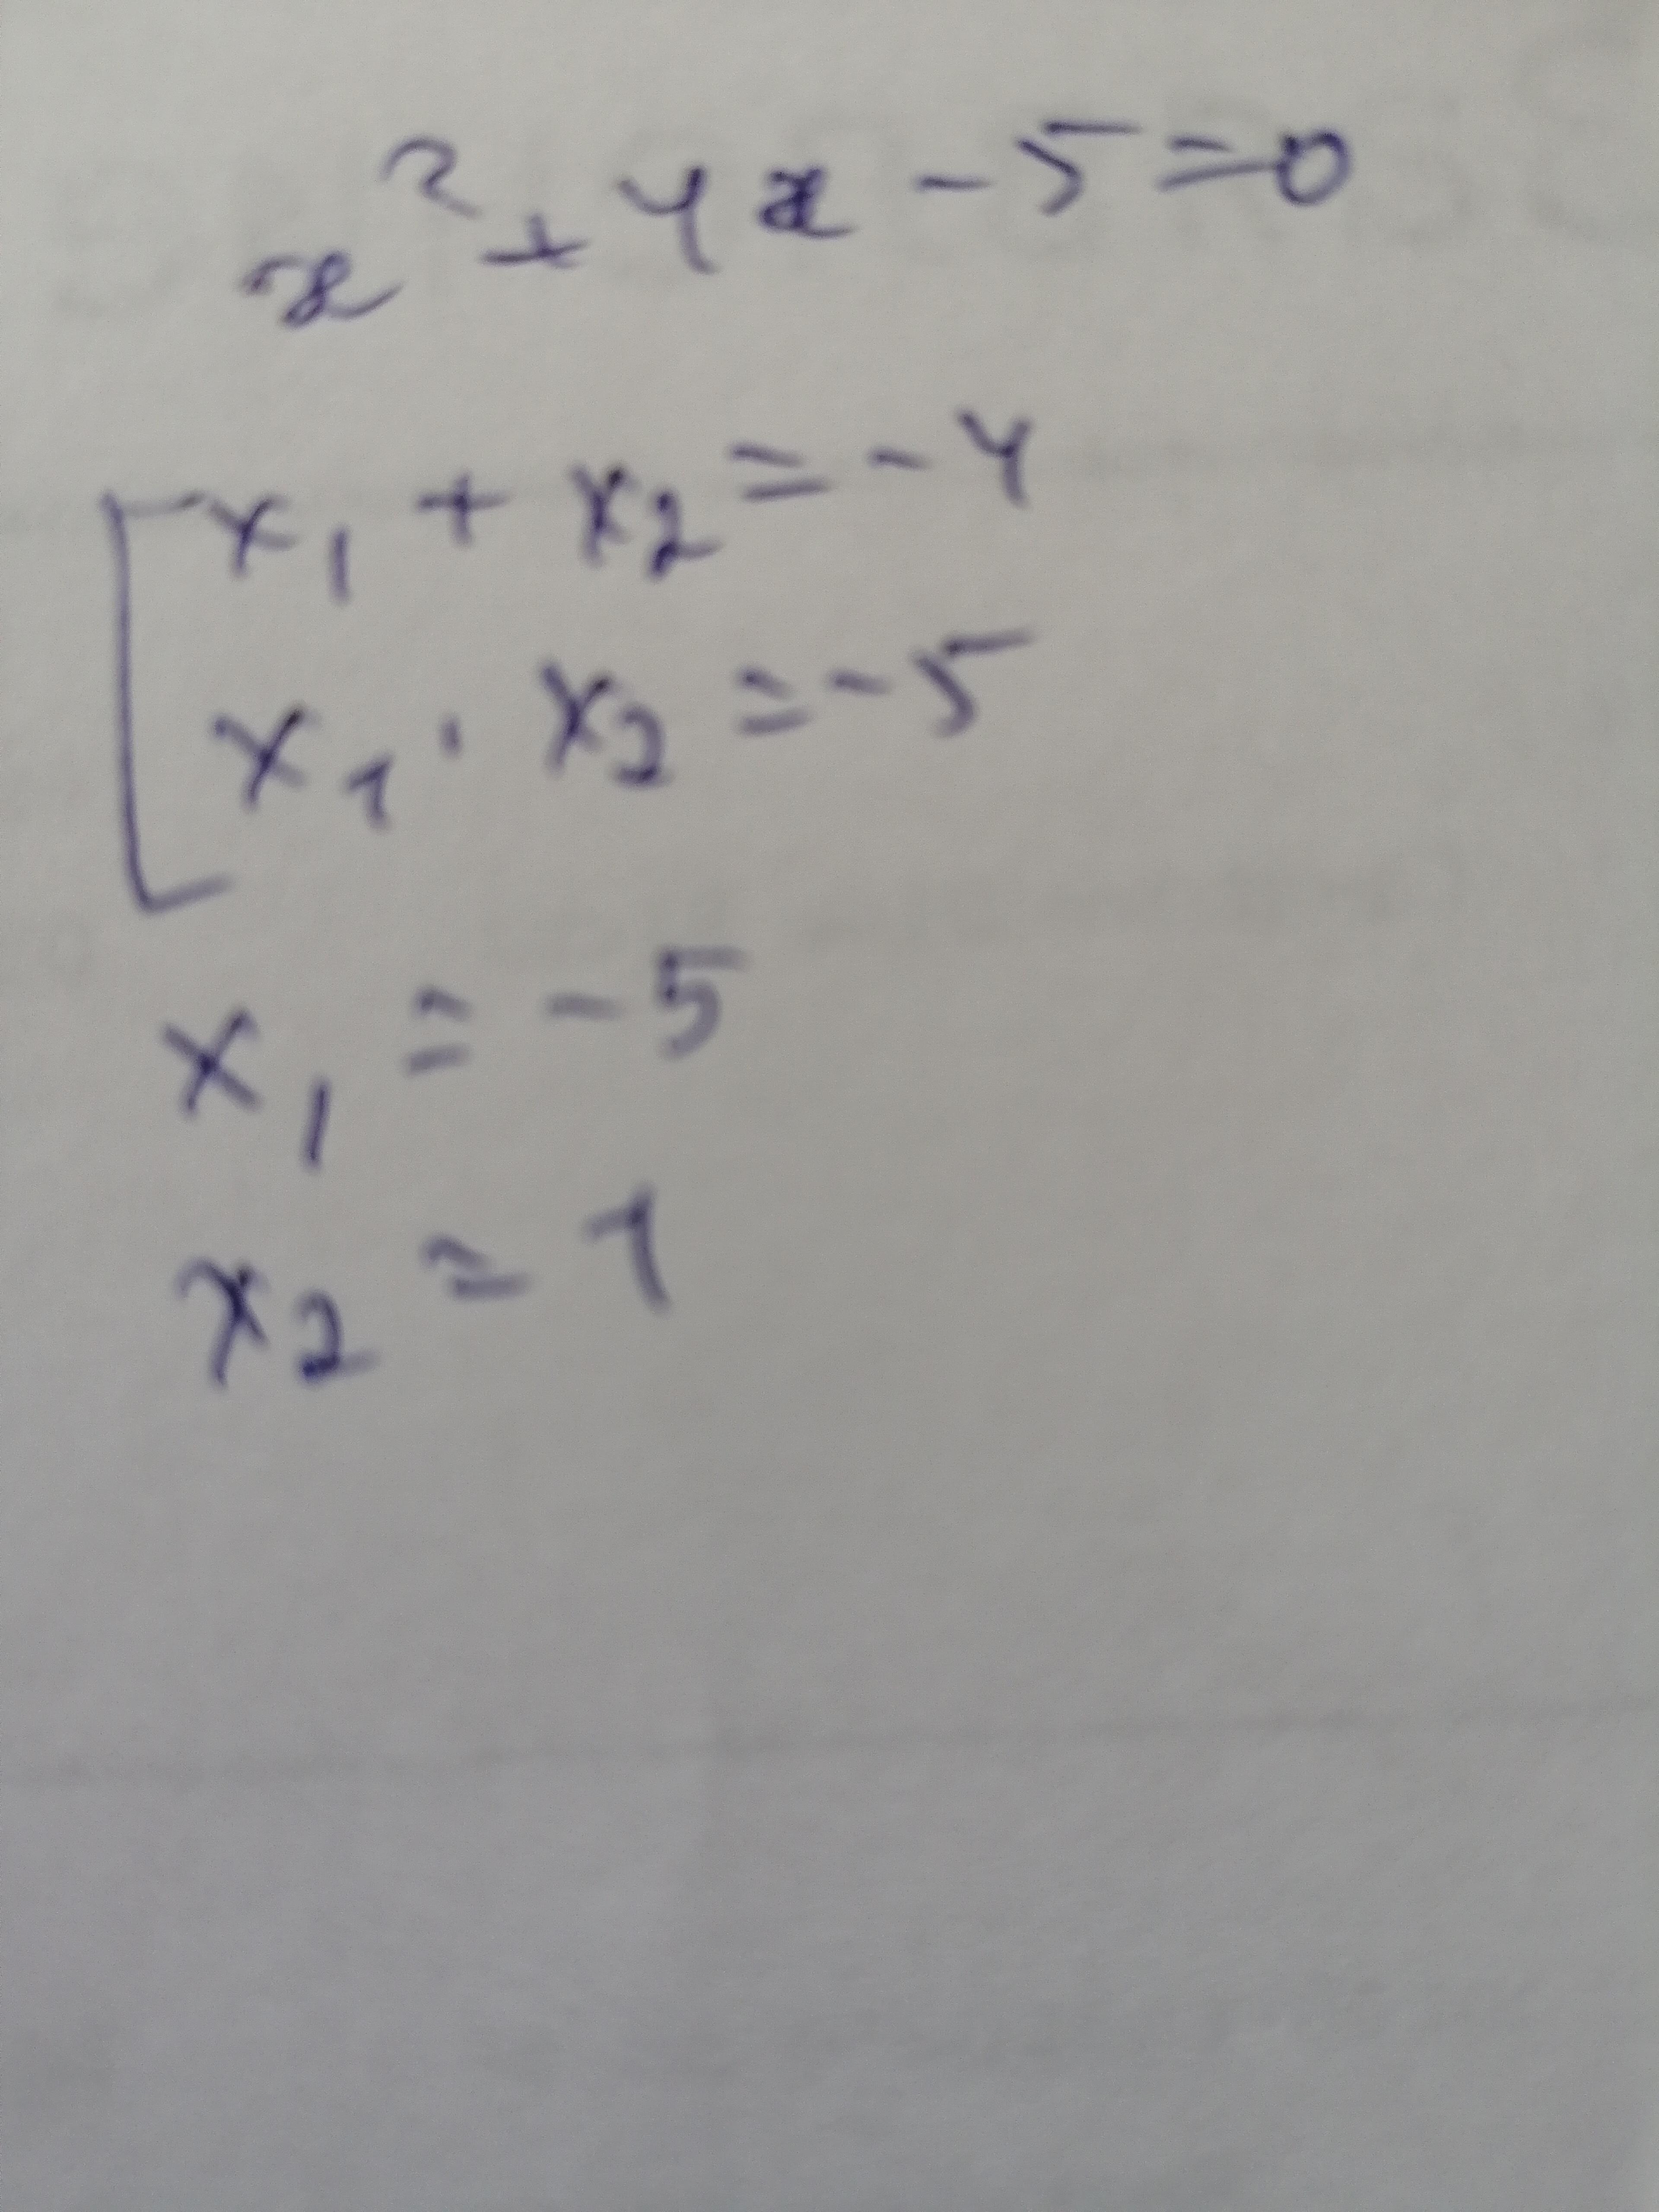 x² + 4x - 5 = 0
x₁ + x₂ = -4
x₁ · x₂ = -5
x₁ = -5
x₂ = 1